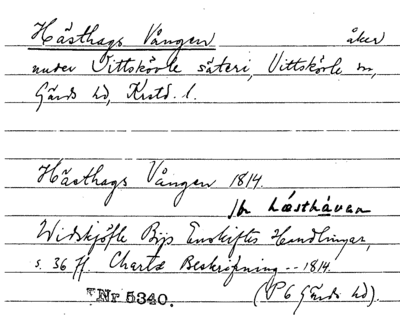 Hästhags Vången åker
under Vittskövle säteri, Vittskövle sn,
Gärds hd, Krstd. l.
Hästhags Vången 1814.
jfr hästhåvan
Widskjöfle Bys Enskiftes Handlingar,
s. 36 ff. Charte Beskrifning -- 1814.
Nr 5340. (P6 Gärds hd).